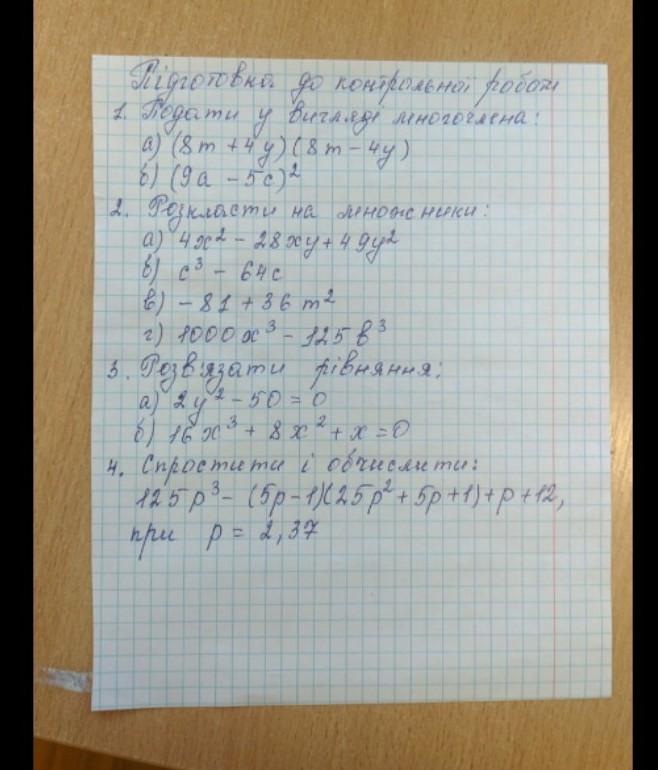 Підготовка до контрольної роботи
1. Подати у вигляді многочлена:
а) (8m + 4y)(8m - 4y)
б) (9a - 5c)²
2. Розкласти на множники:
а) 4x² - 28xy + 49y²
б) c³ - 64c
в) - 81 + 36m²
г) 1000x³ - 125b³
3. Розв'язати рівняння:
а) 2y² - 50 = 0
б) 16x³ + 8x² + x = 0
4. Спростити і обчислити:
125p³ - (5p-1)(25p² + 5p+1) + p + 12,
при p = 2,37